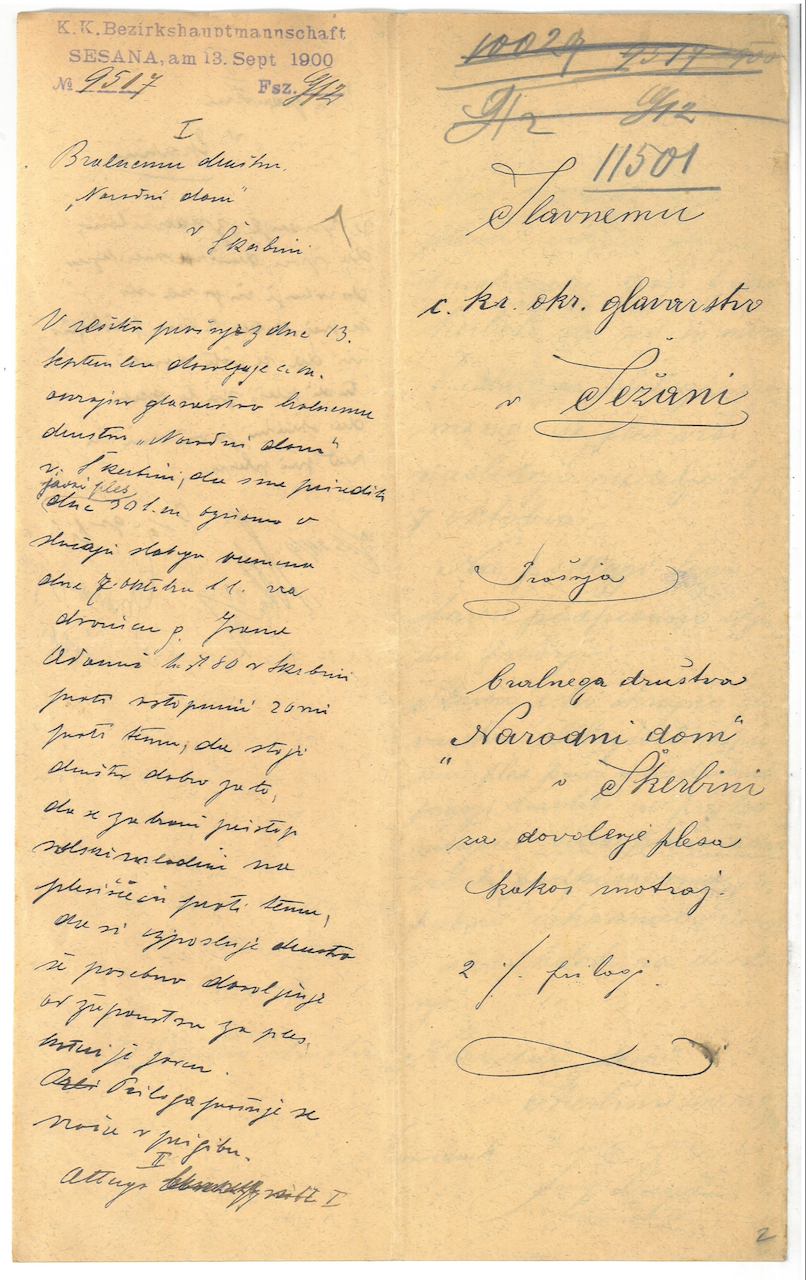 K. K. Bezirkshauptmannschaft
SESANA, am 13. Sept 1900
№ 9517 Fsz. G/12
I
Bralnemu društvu
„Narodni dom"
v Škerbini
V rešitev prošnje z dne 13.
septembra dovoljuje c. kr.
okrajno glavarstvo bralnemu
društvu „Narodni dom"
v Škerbini, da sme prirediti
javni ples
dne 30 t. m. oziroma v
slučaji slabega vremena
dne 7 oktobra t. l. na
dvorišču g. Ivana
Adamič h. št 80 v Škerbini
proti vstopnini 20 vin
proti temu, da stoji
društvo dobro za to,
da se zabrani pristop
šolski mladini na
plesišče in proti temu,
da si izposluje društvo
še posebno dovoljenje
od županstva za ples
Priloga prošnje se
vrača v prigibu.
II
I
10029 9517
G/12 G/12
11501
Slavnemu
c. kr. okr. glavarstvo
v Sežani
Prošnja
bralnega društva
"Narodni dom"
v Škerbini
za dovolenje plesa
kakor znotraj.
2 ·/. prilogi.
2